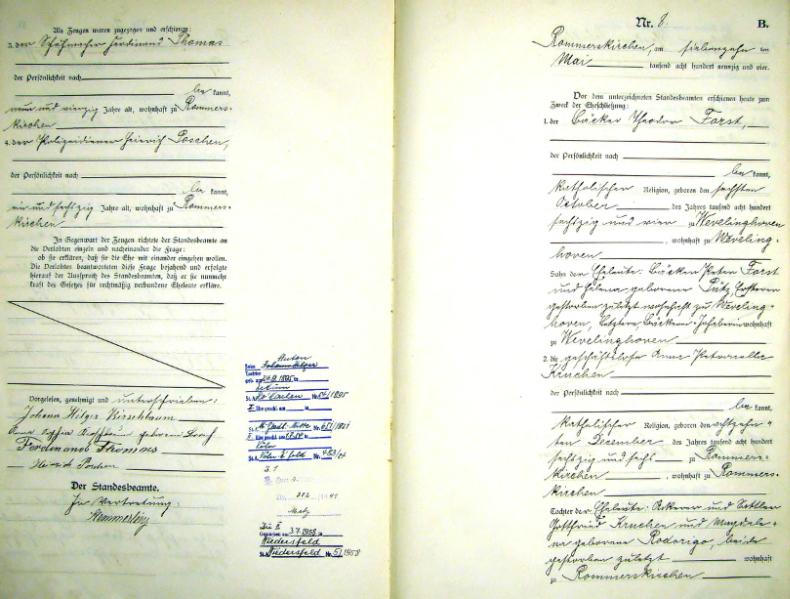 Als Zeugen waren zugezogen und erschienen:
3. der Schuhmacher Ferdinand Thomas
der Persönlichkeit nach
be kannt,
neun und vierzig Jahre alt, wohnhaft zu Rommers-
kirchen
4. der Polizeidiener Heinrich Poschen,
der Persönlichkeit nach
be kannt,
ein und sechzig Jahre alt, wohnhaft zu Rommers-
kirchen
In Gegenwart der Zeugen richtete der Standesbeamte an
die Verlobten einzeln und nacheinander die Frage:
ob sie erklären, daß sie die Ehe mit einander eingehen wollen.
Die Verlobten beantworteten diese Frage bejahend und erfolgte
hierauf der Ausspruch des Standesbeamten, daß er sie nunmehr
kraft des Gesetzes für rechtmäßig verbundene Eheleute erkläre.
Vorgelesen, genehmigt und unterschrieben:
Johann Hilger Kirschbaum
geborene
Ferdinand Thomas
Poschen
Der Standesbeamte.
In Vertretung:
Anton
1895
Köln
Metz
3.7.1958
Niedersfeld
St.A. Niedersfeld Nr. 5/1958
Nr. 8.
B.
Rommerskirchen, am siebenzehn ten
Mai tausend acht hundert neunzig und vier.
Vor dem unterzeichneten Standesbeamten erschienen heute zum
Zweck der Eheschließung:
1. der Bäcker Theodor Forst,
der Persönlichkeit nach
be kannt,
katholischer Religion, geboren den sechsten
October des Jahres tausend acht hundert
sechzig und vier zu Wevelinghoven
, wohnhaft zu Weveling-
hoven
Sohn der Eheleute: Bäcker Peter Forst
und Helena geborene Pütz, Ersterer
gestorben zuletzt wohnhaft zu Weveling-
hoven, Letztere, Bäckerei-Inhaberin wohnhaft
zu Wevelinghoven
2. die geschäftslose Anna Petronella
Kruchen
der Persönlichkeit nach
be kannt,
katholischer Religion, geboren den achtzehn-
ten December des Jahres tausend acht hundert
sechzig und sechs zu Rommers-
kirchen, wohnhaft zu Rommers-
kirchen
Tochter der Eheleute: Ackerer und Sattler
Gottfried Kruchen und Magdale-
na geborene Rodorigo, beide
gestorben zuletzt wohnhaft
zu Rommerskirchen